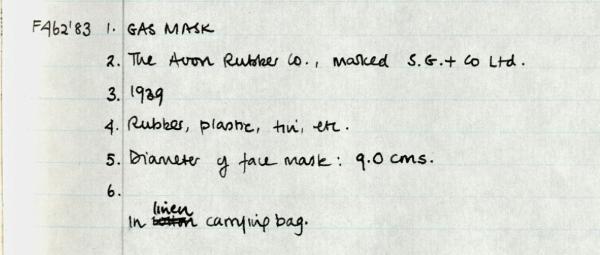 FA62'83 1. GAS MASK
2. The Avon Rubber Co., marked S.G.+ Co Ltd.
3. 1939
4. Rubber, plastic, tin, etc.
5. Diameter of face mask: 9.0 cms.
6.
linen
In cotton carrying bag.